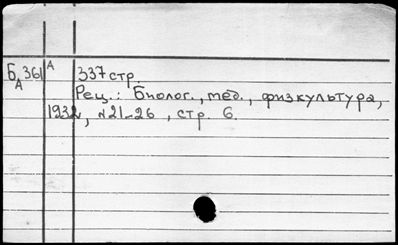 Б 361 А 337 стр.
А Рец.: Биолог., мед., физкультура,
1932, №21-26, стр. 6.